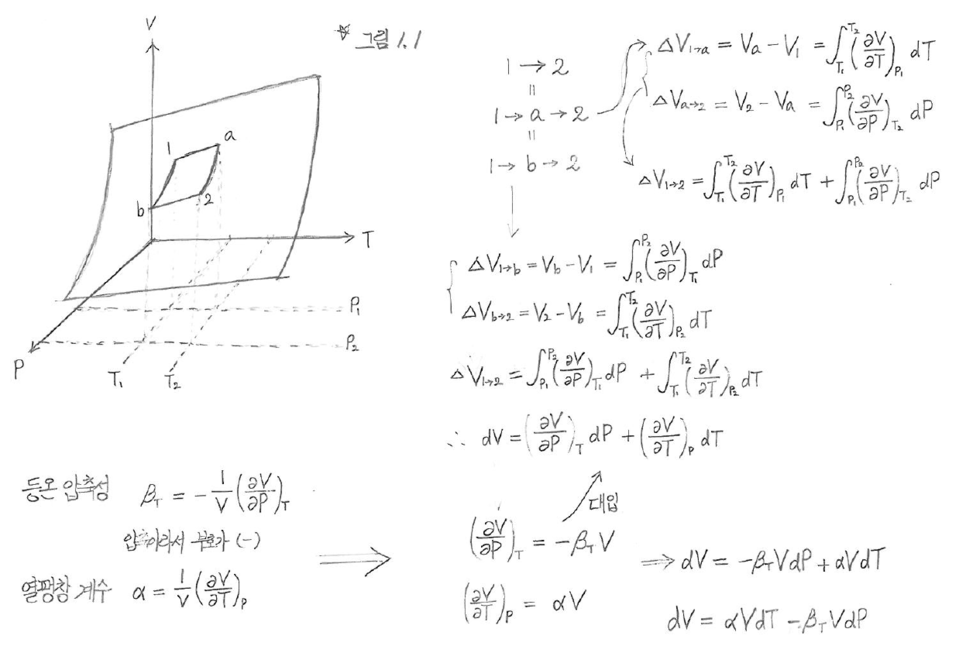 V
☆ 그림 1.1
1
a
b
2
T
P₁
P₂
P
T₁
T₂
1 → 2
॥
1 → a → 2
॥
1 → b → 2
ΔV₁→ₐ = Vₐ - V₁ = ∫_{T₁}^{T₂} (∂V/∂T)_{P₁} dT
ΔVₐ→₂ = V₂ - Vₐ = ∫_{P₁}^{P₂} (∂V/∂P)_{T₂} dP
ΔV₁→₂ = ∫_{T₁}^{T₂} (∂V/∂T)_{P₁} dT + ∫_{P₁}^{P₂} (∂V/∂P)_{T₂} dP
ΔV_{1→b} = V_b - V₁ = ∫_{P₁}^{P₂} (∂V/∂P)_{T₁} dP
ΔV_{b→2} = V₂ - V_b = ∫_{T₁}^{T₂} (∂V/∂T)_{P₂} dT
ΔV₁→₂ = ∫_{P₁}^{P₂} (∂V/∂P)_{T₁} dP + ∫_{T₁}^{T₂} (∂V/∂T)_{P₂} dT
∴ dV = (∂V/∂P)_T dP + (∂V/∂T)_P dT
등온 압축성 β_T = - 1/V (∂V/∂P)_T
압축이라서 부호가 (-)
열팽창 계수 α = 1/V (∂V/∂T)_P
⟹
대입
(∂V/∂P)_T = -β_T V
(∂V/∂T)_P = αV
⟹ dV = -β_T V dP + αV dT
dV = αV dT - β_T V dP